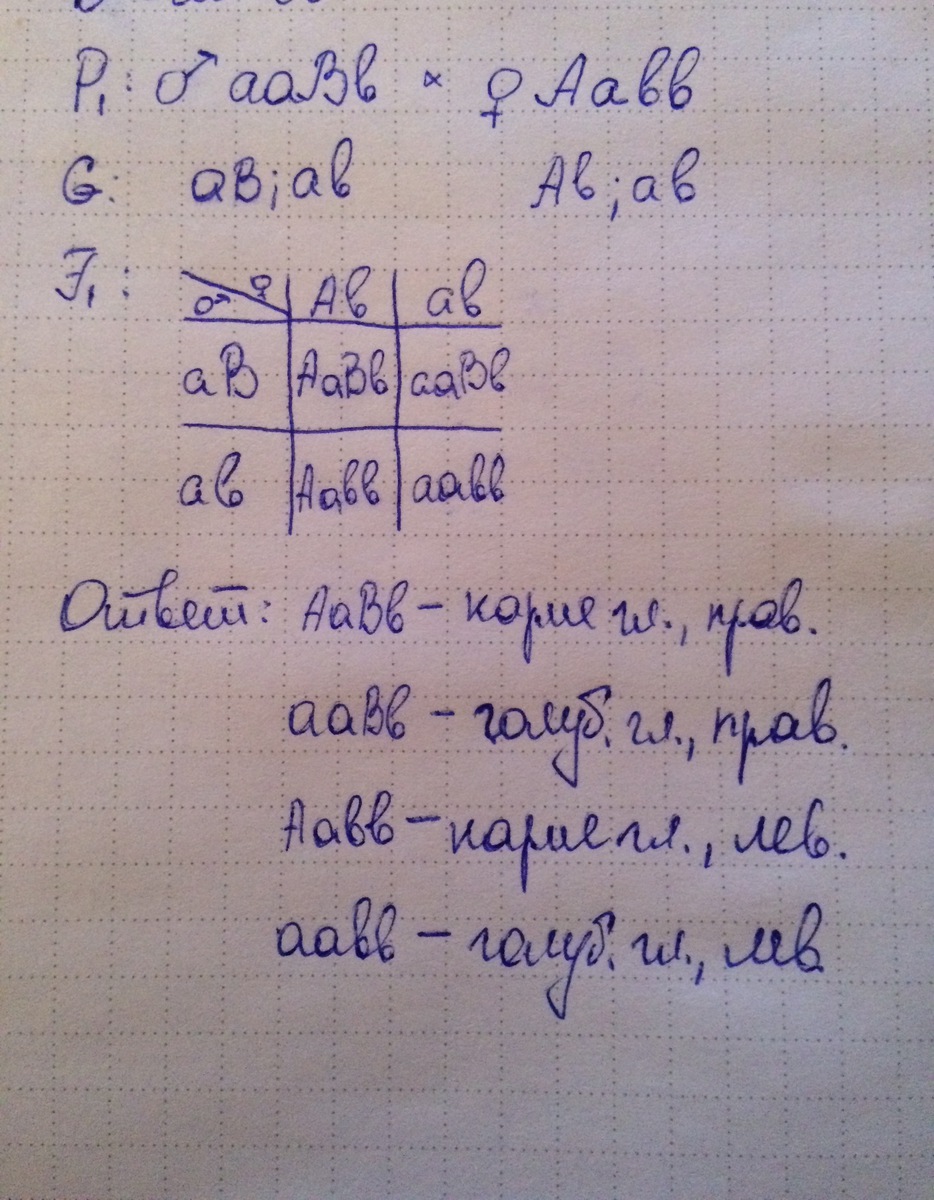 P₁: ♂ ааВв × ♀ Аавв
G: аВ; ав Ав; ав
F₁:
♂ ♀ Ав ав
аВ АаВв ааВв
ав Аавв аавв
Ответ: АаВв – карие гл., прав.
ааВв – голуб. гл., прав.
Аавв – карие гл., лев.
аавв – голуб. гл., лев